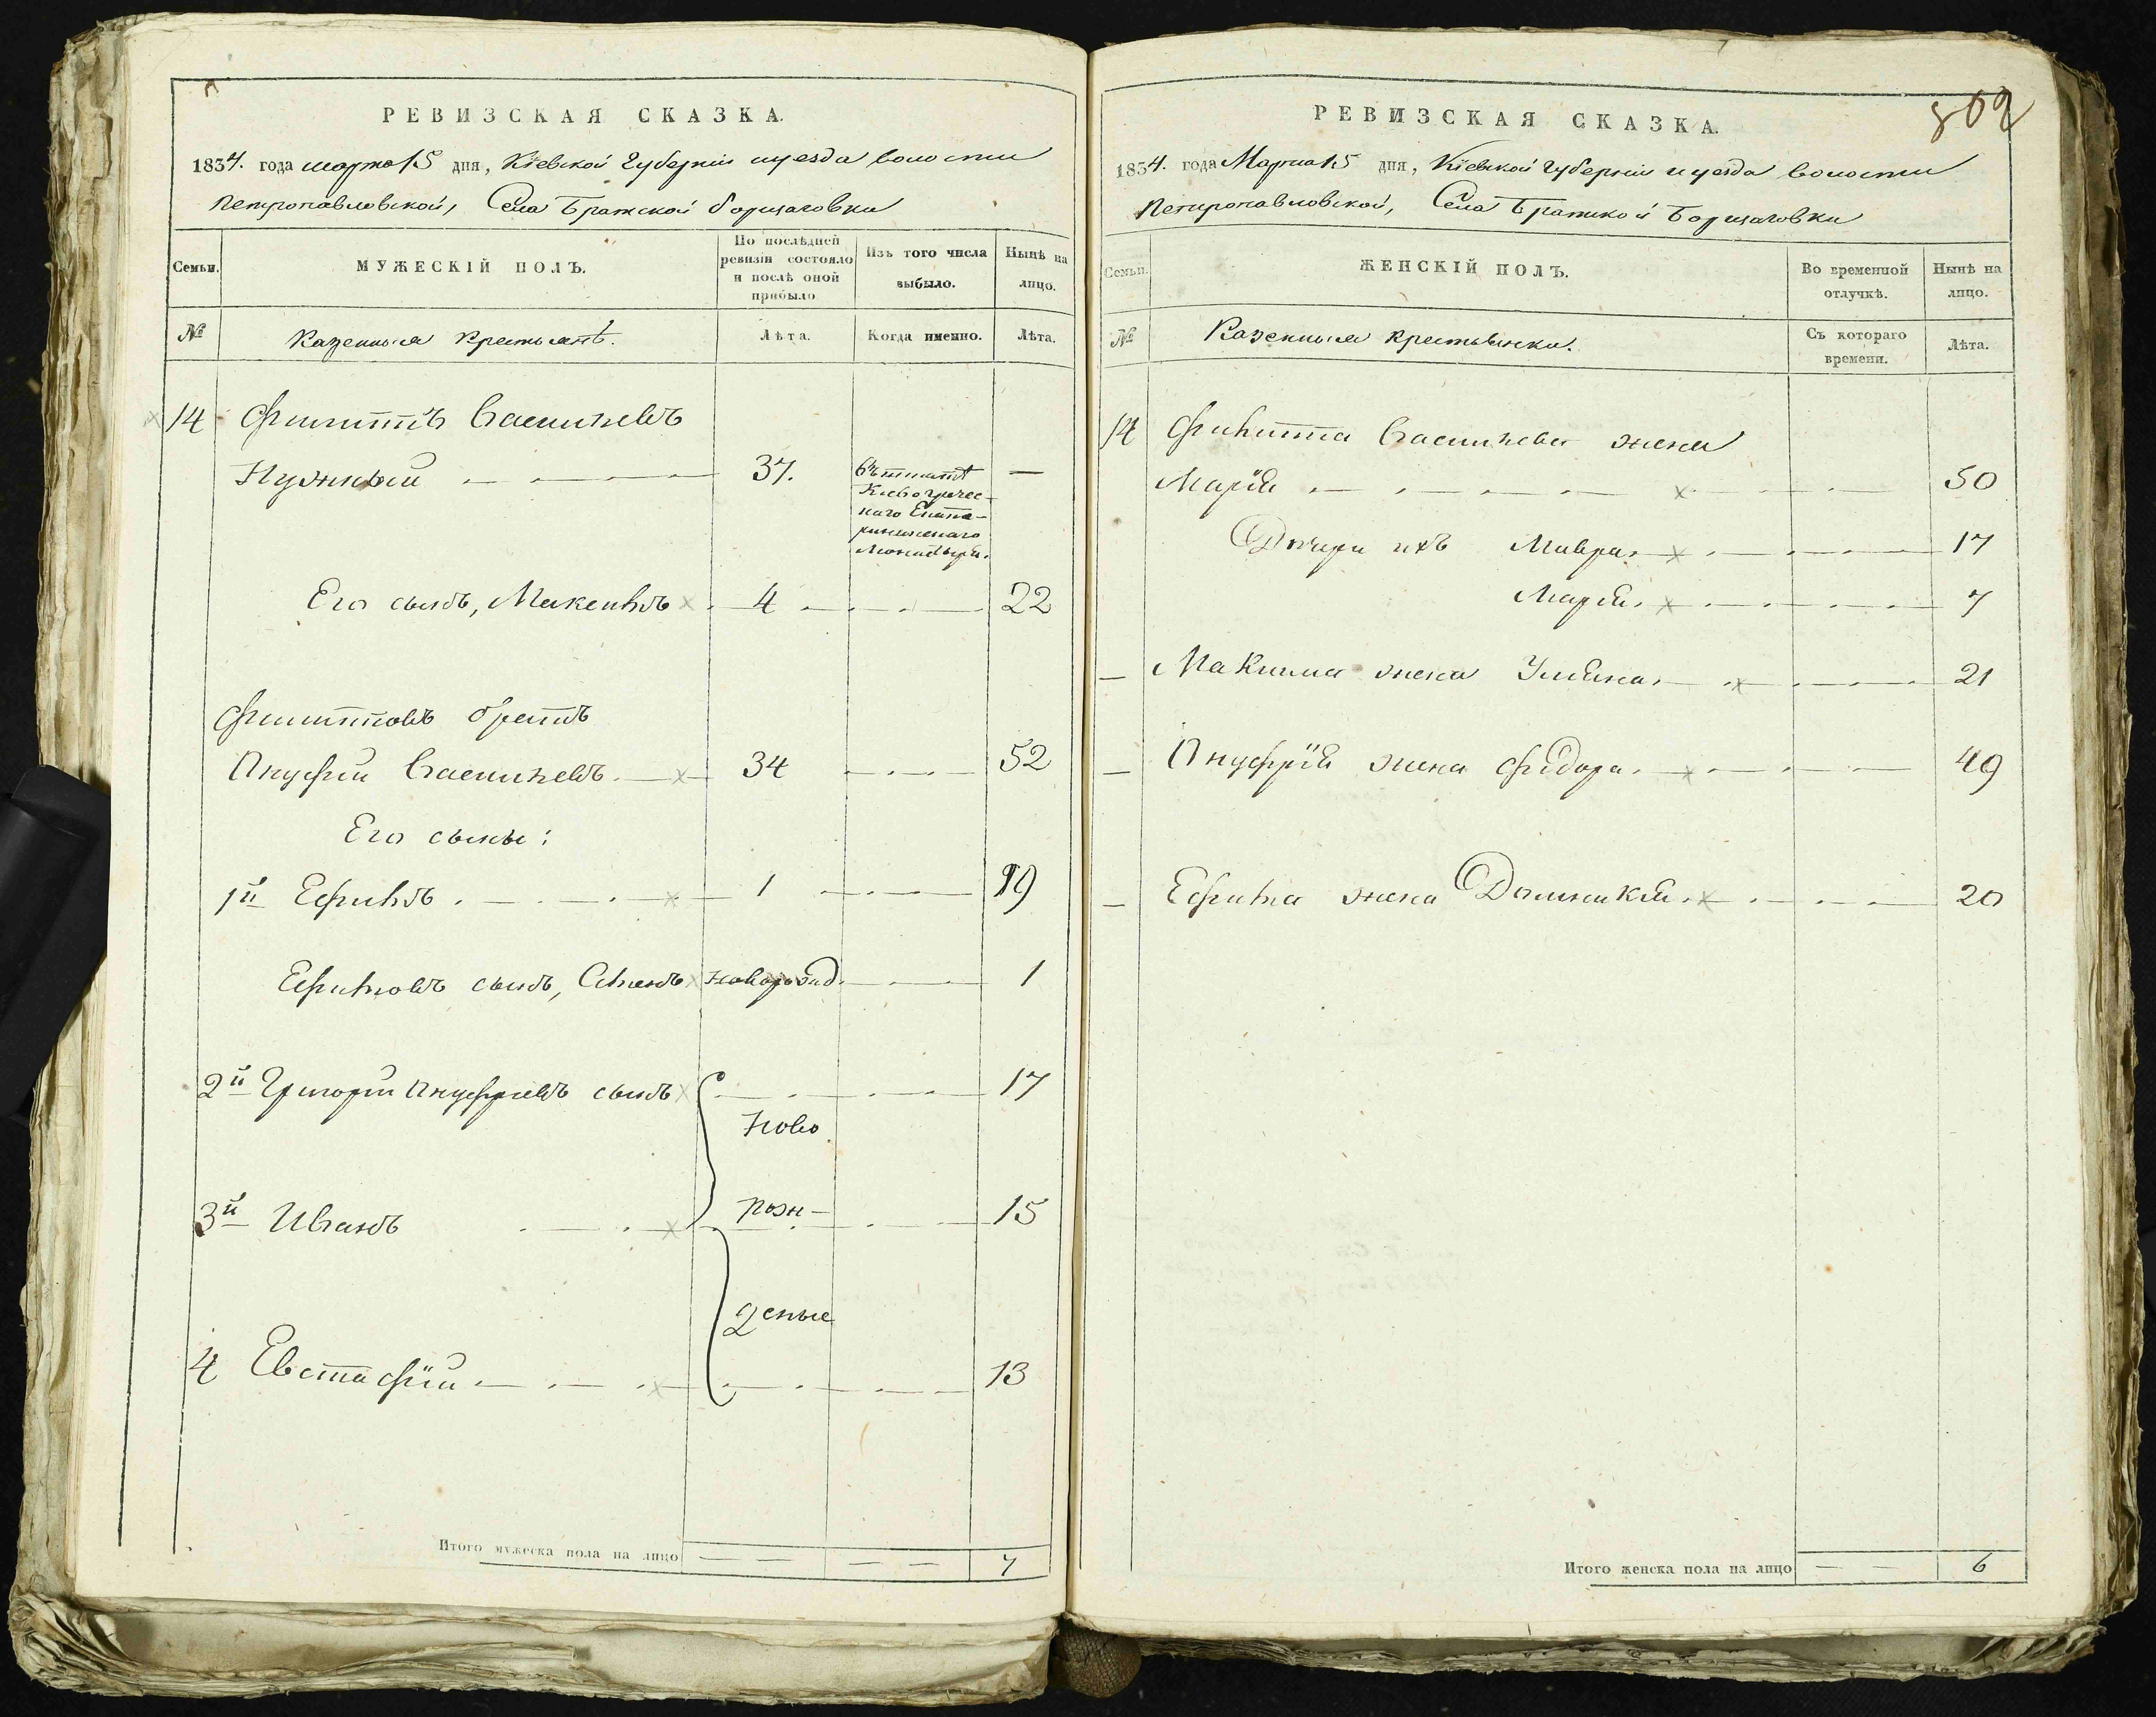 РЕВИЗСКАЯ СКАЗКА.
1834. года марта 15 дня, Кіевской Губерніи и уезда волости
Петропавловской, Села Братской Борщаговки
Семьи.
МУЖЕСКІЙ ПОЛЪ.
По послѣдней ревизіи состояло и послѣ оной прибыло
Изъ того числа выбыло.
Нынѣ на лицо.
№
Казенныя Крестьянѣ.
Лѣта.
Когда именно.
Лѣта.
14 Филиппъ Васильевъ
Нужный 37. —
въ штатѣ
Киевогречес-
каго Екате-
рининскаго
Монастыря.
Его сынъ, Максимъ 4 22
Филипповъ братъ
Ануфрій Васильевъ 34 52
Его сыны:
1й Ефимъ 1 19
Ефимовъ сынъ, Семенъ новорожд. 1
2й Григорій Ануфріевъ сынъ 17
Ново
3й Иванъ рож- 15
деные
4 Евстафій 13
Итого мужеска пола на лицо — — — — 7
802
РЕВИЗСКАЯ СКАЗКА.
1834. года Марта 15 дня, Кіевской Губерніи и уезда волости
Петропавловской, Села Братской Борщаговки
Семьи.
ЖЕНСКІЙ ПОЛЪ.
Во временной отлучкѣ.
Нынѣ на лицо.
№
Казенныя крестьянки.
Съ котораго времени.
Лѣта.
14 Филиппа Васильева жена
Марія 50
Дочери ихъ Мавра 17
Марія 7
— Максима жена Уліяна 21
— Ануфрія жена Федора 49
— Ефима жена Домникія 20
Итого женска пола на лицо — — 6